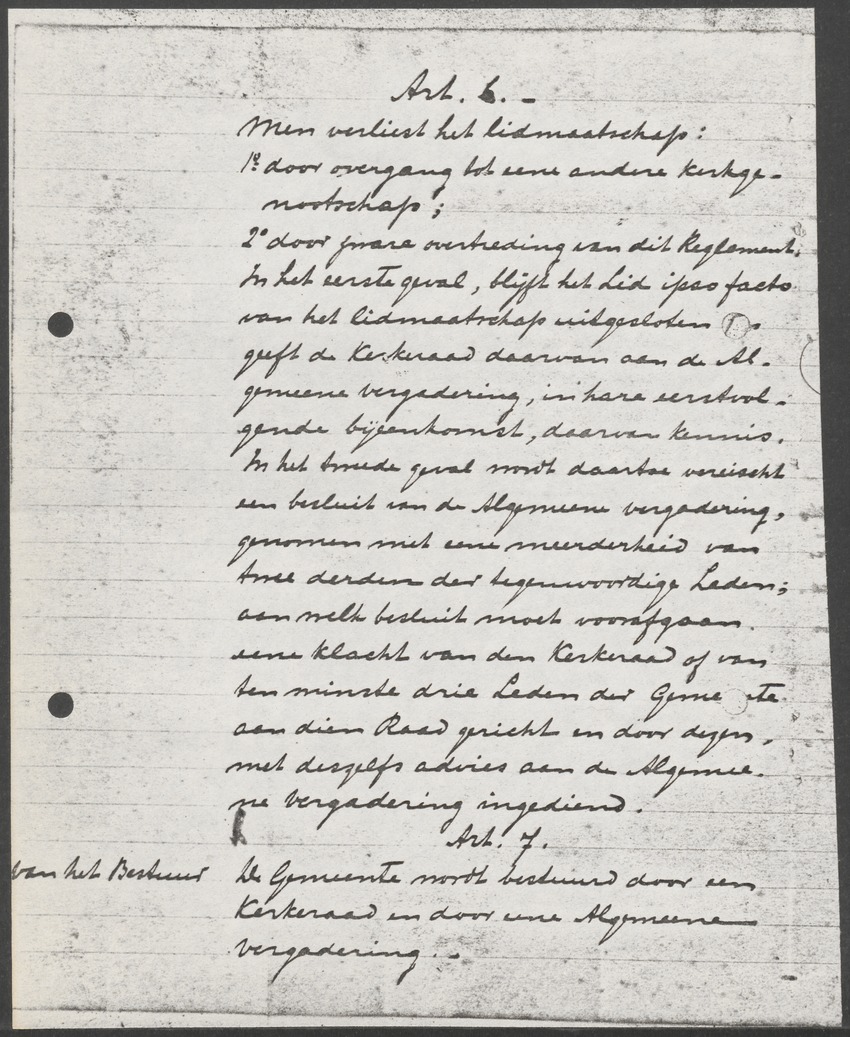 Art. 6. -
Men verliest het lidmaatschap:
1º door overgang tot eene andere Kerkge-
nootschap;
2º door zware overtreding van dit Reglement.
In het eerste geval, blijft het Lid ipso facto
van het lidmaatschap uitgesloten
geeft de Kerkeraad daarvan aan de Al-
gemeene vergadering, in hare eerstvol-
gende bijeenkomst, daarvan kennis.
In het tweede geval wordt daartoe vereischt
een besluit van de Algemeene vergadering,
genomen met eene meerderheid van
twee derden der tegenwoordige Leden;
aan welk besluit moet voorafgaan
eene klacht van den Kerkeraad of van
ten minste drie Leden der Geme te
aan dien Raad gericht en door dezen,
met deszelfs advies aan de Algemee-
ne vergadering ingediend.
Art. 7.
van het Bestuur De Gemeente wordt bestuurd door een
Kerkeraad en door eene Algemeene
vergadering. -